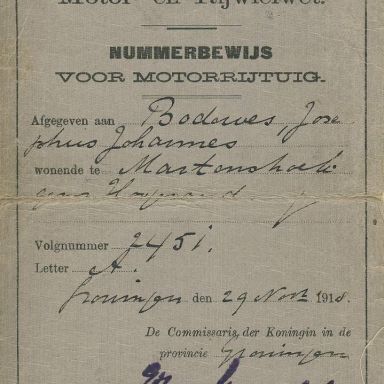 Motor- en Rijwielwet.
NUMMERBEWIJS
VOOR MOTORRIJTUIG.
Afgegeven aan Bodewes, Jose
phus Johannes
wonende te Martenshoek
gem.
Volgnummer 2451.
Letter A.
Groningen den 29 Nov. 1918.
De Commissaris der Koningin in de
provincie Groningen